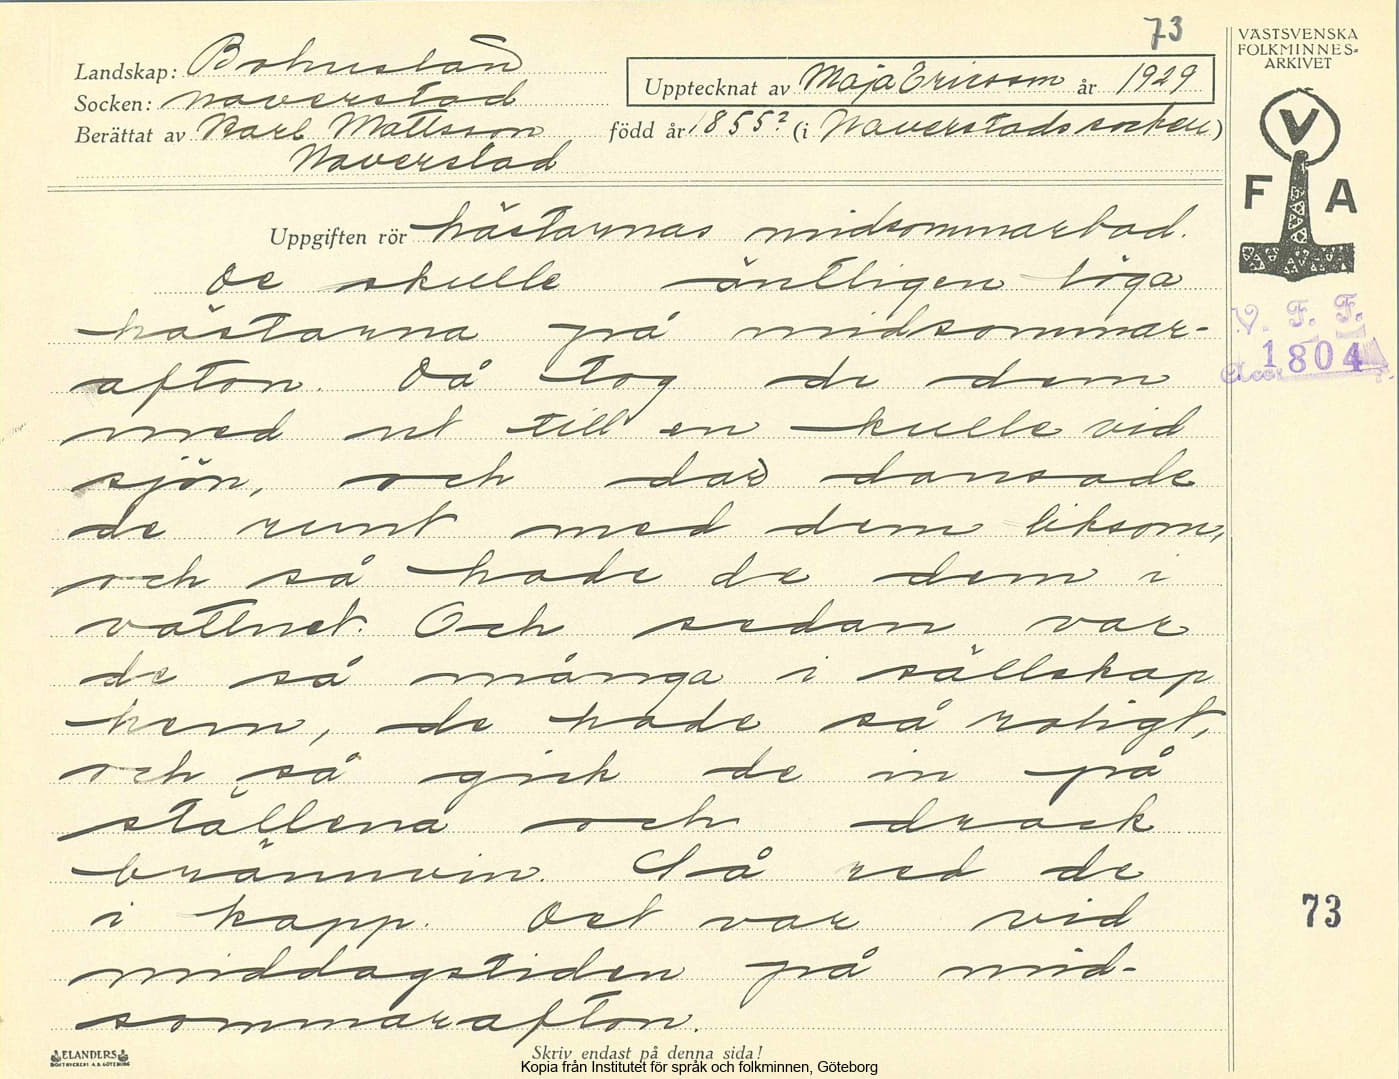 73
Landskap: Bohuslän
Socken: Naverstad
Berättat av Karl Mattsson
Naverstad
Upptecknat av Maja Ericsson år 1929
född år 1855? (i Naverstads socken)
VÄSTSVENSKA
FOLKMINNES-
ARKIVET
V
F A
V. F. F.
Acc. 1804
Uppgiften rör hästarnas midsommarbad.
De skulle äntligen löga
hästarna på midsommar-
afton. Då tog de dem
med ut till en kulle vid
sjön, och där dansade
de runt med dem liksom,
och så hade de dem i
vattnet. Och sedan var
de så många i sällskap
hem, de hade så roligt,
och så gick de in på
ställena och drack
brännvin. Så red de
i kapp. Det var vid
middagstiden på mid-
sommarafton.
73
ELANDERS
BOKTRYCKERI A.B. GÖTEBORG
Skriv endast på denna sida!
Kopia från Institutet för språk och folkminnen, Göteborg